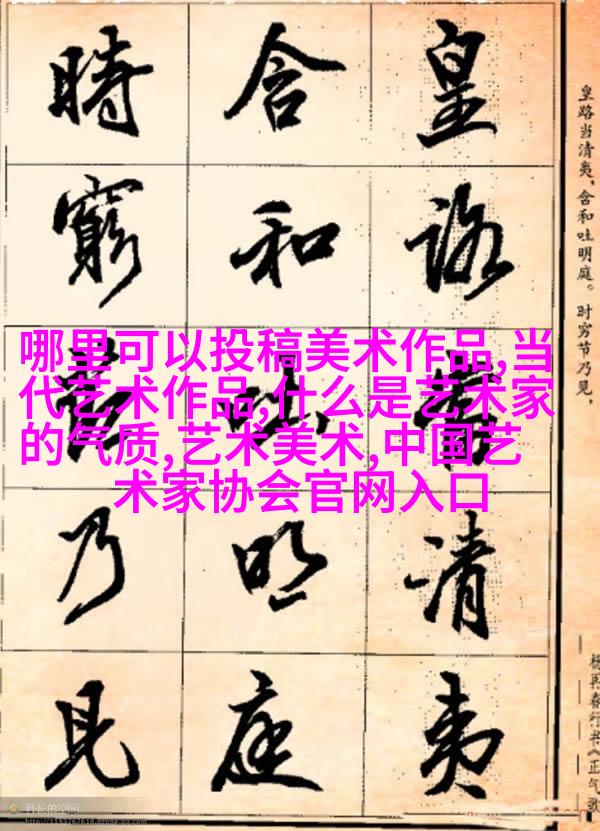 皇路當清夷
含和吐明庭
時窮節乃見
皇路当清夷，含和吐明庭。时穷节乃见，
杨再春行书《正气歌
哪里可以投稿美术作品,当
代艺术作品,什么是艺术家
的气质,艺术美术,中国艺
术家协会官网入口
科长的空间